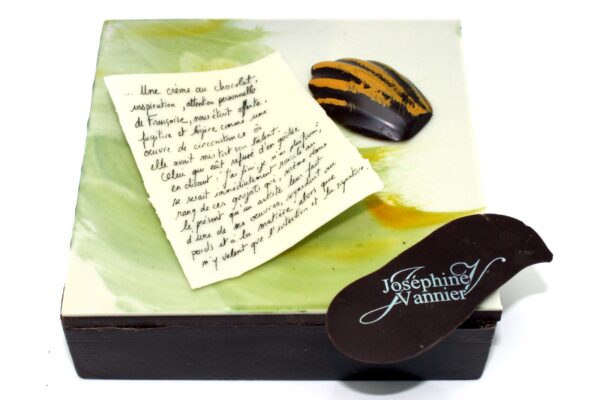 ... Une crème au chocolat,
inspiration, attention personnelle
de Françoise, nous était offerte,
fugitive et légère comme une
œuvre de circonstance où
elle avait mis tout son talent.
Celui qui eût refusé d'en goûter
en disant : "j'ai fini, je n'ai plus faim",
se serait immédiatement ravalé au
rang de ces goujats qui, même dans
le présent qu'un artiste leur fait
d'une de ses œuvres, regardent au
poids et à la matière alors que
n'y valent que l'intention et la signature.
Joséphine
Vannier